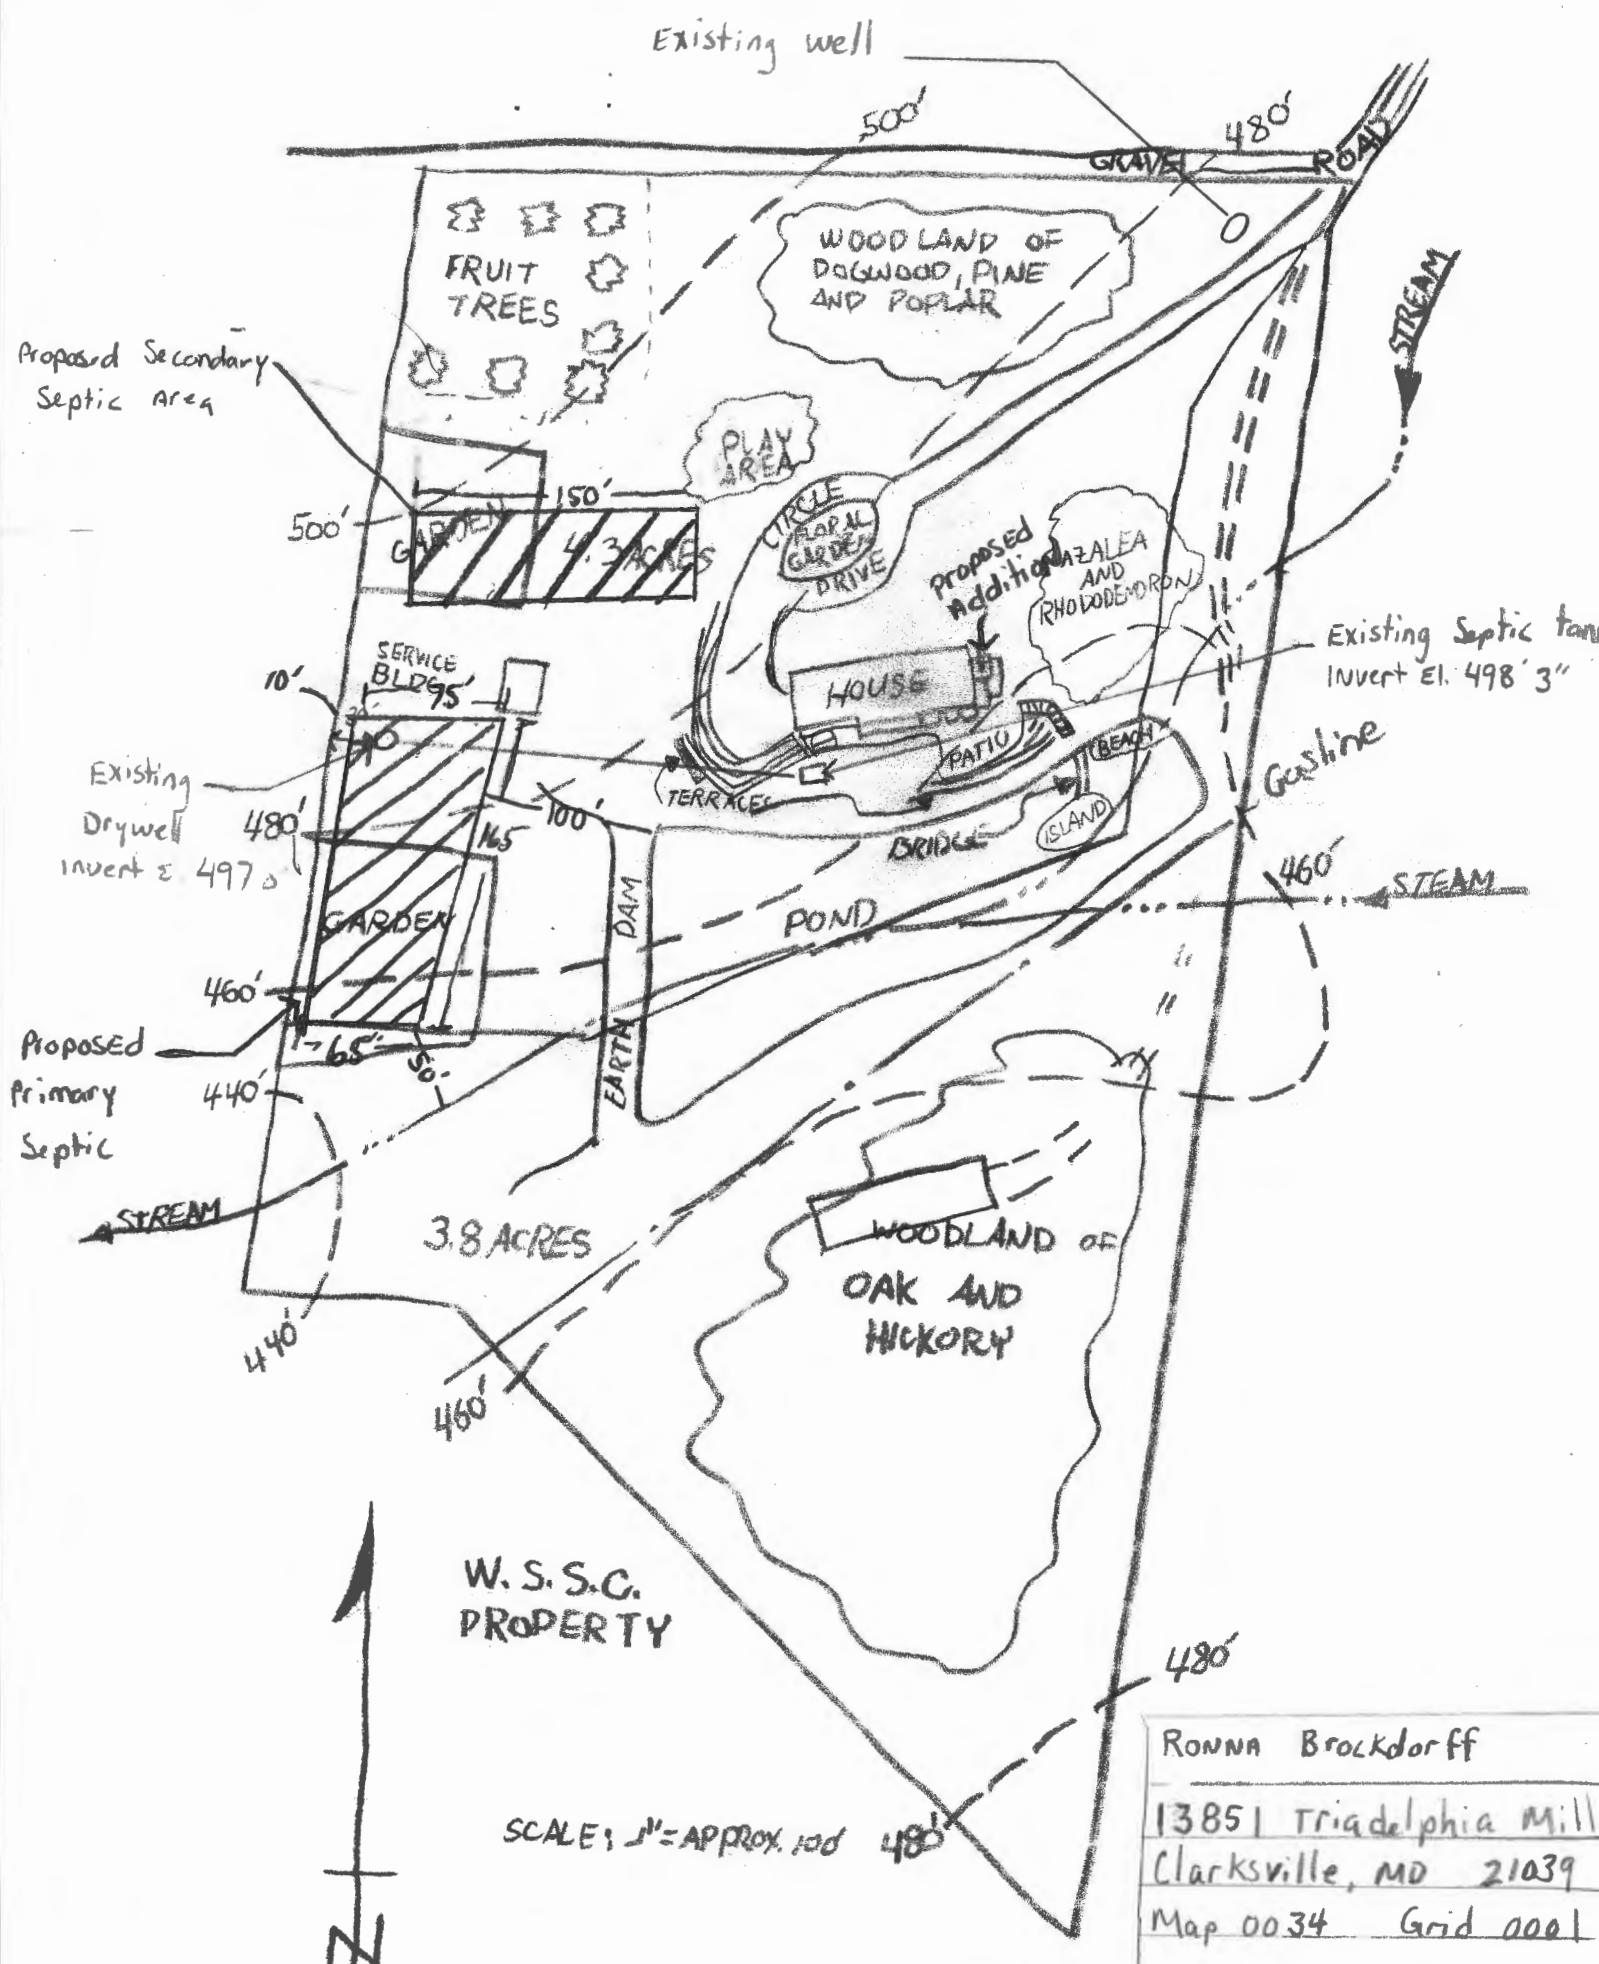 Existing well
500'
480'
GRAVEL ROAD
FRUIT
TREES
WOODLAND OF
DOGWOOD, PINE
AND POPLAR
STREAM
Proposed Secondary
Septic Area
PLAY
AREA
150'
500'
GARDEN
4.3 ACRES
CIRCLE
FLORAL
GARDEN
DRIVE
Proposed
Addition
AZALEA
AND
RHODODENDRON
Existing Septic tan
Invert El. 498' 3"
SERVICE
BLDG
95'
10'
HOUSE
PATIO
BEACH
Gasline
Existing
Drywell
Invert
TERRACES
480'
100'
165
BRIDGE
ISLAND
460'
STEAM
DAM
POND
GARDEN
460'
Proposed
Primary
Septic
65'
50'
EARTH
440'
STREAM
3.8 ACRES
WOODLAND OF
OAK AND
HICKORY
440'
460'
W.S.S.C.
PROPERTY
480'
SCALE: 1"=APPROX. 100'
480'
N
RONNA Brockdorff
13851 Triadelphia Mill
Clarksville, MD 21039
Map 0034 Grid 0001